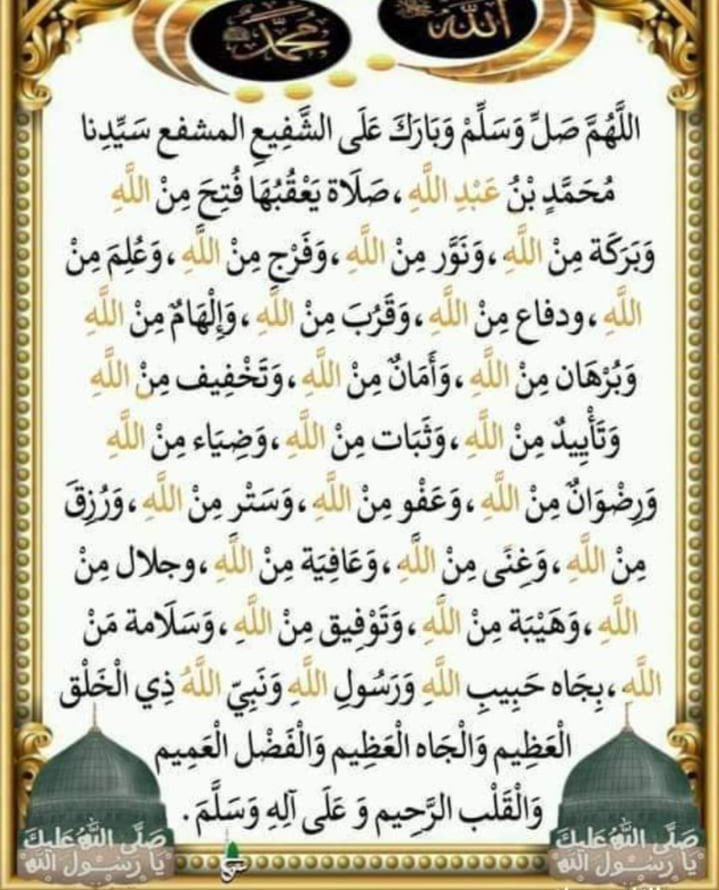 محمد
الله
اللَّهُمَّ صَلِّ وَسَلِّمْ وَبَارَكَ عَلَى الشَّفِيعِ المشفع سَيِّدِنا
مُحَمَّدٍ بْنُ عَبْدِ اللَّهِ ، صَلَاة يَعْقُبُهَا فُتِحَ مِنْ اللَّهِ
وَبَرَكَة مِنْ اللَّهِ ، وَنَوَّر مِنْ اللَّهِ ، وَفَرْج مِنْ اللَّهِ ، وَعُلِمَ مِنْ
اللَّهِ ، ودفاع مِنْ اللَّهِ ، وَقَرُبَ مِنْ اللَّهِ ، وَإِلْهَامٌ مِنْ اللَّهِ
وَبُرْهَان مِنْ اللَّهِ ، وَأَمَانٌ مِنْ اللَّهِ ، وَتَخْفِيف مِنْ اللَّهِ
وَتَأْيِيدٌ مِنْ اللَّهِ ، وَثَبَات مِنْ اللَّهِ ، وَضِيَاء مِنْ اللَّهِ
وَرِضْوَانٌ مِنْ اللَّهِ ، وَعَفْو مِنْ اللَّهِ ، وَسَتْر مِنْ اللَّهِ ، وَرُزِقَ
مِنْ اللَّهِ ، وَغِنًى مِنْ اللَّهِ ، وَعَافِيَة مِنْ اللَّهِ ، وجلال مِنْ
اللَّهِ ، وَهَيْبَة مِنْ اللَّهِ ، وَتَوْفِيق مِنْ اللَّهِ ، وَسَلَامة مَنْ
اللَّهِ ، بِجَاه حَبِيبِ اللَّهِ وَرَسُولِ اللَّهِ وَنَبِيّ اللَّهُ ذِي الْخَلْق
الْعَظِيم وَالْجَاه الْعَظِيم وَالْفَضْل الْعَمِيم
وَالْقَلْب الرَّحِيم وَ عَلَى آلِهِ وَسَلَّمَ .
صَلَّى اللَّهُ عَلَيْكَ
يَا رَسُولَ اللهِ
صَلَّى اللَّهُ عَلَيْكَ
يَا رَسُولَ اللهِ